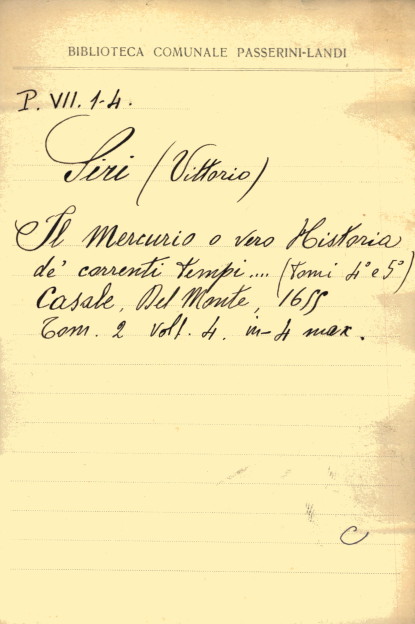 BIBLIOTECA COMUNALE PASSERINI-LANDI
P. VII. 1-4.
Siri (Vittorio)
Il Mercurio o vero Historia
de' correnti tempi.... (tomi 4° e 5°)
Casale, Del Monte, 1655
Tom. 2 voll. 4. in-4 max.
C